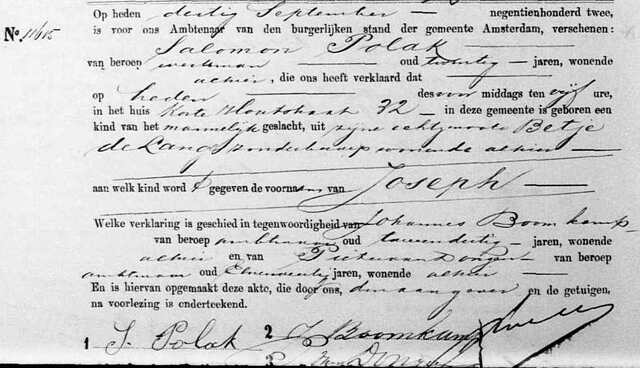 Op heden dertig September negentienhonderd twee,
No. 11605 is voor ons Ambtenaar van den burgerlijken stand der gemeente Amsterdam, verschenen:
Salomon Polak
van beroep werkman oud twintig jaren, wonende
alhier, die ons heeft verklaard dat
op heden des voor middags ten vijf ure,
in het huis Korte Houtstraat 32 in deze gemeente is geboren een
kind van het mannelijk geslacht, uit zijne echtgenoote Betje
de Lang zonder beroep wonende alhier
aan welk kind word gegeven de voornaam van Joseph
Welke verklaring is geschied in tegenwoordigheid van Johannes Boomkamp
van beroep ambtenaar oud jaren, wonende
alhier en van Pieter van van beroep
ambtenaar oud jaren, wonende alhier
En is hiervan opgemaakt deze akte, die door ons, den aangever en de getuigen,
na voorlezing is onderteekend.
1 S. Polak 2 J. Boomkamp
3